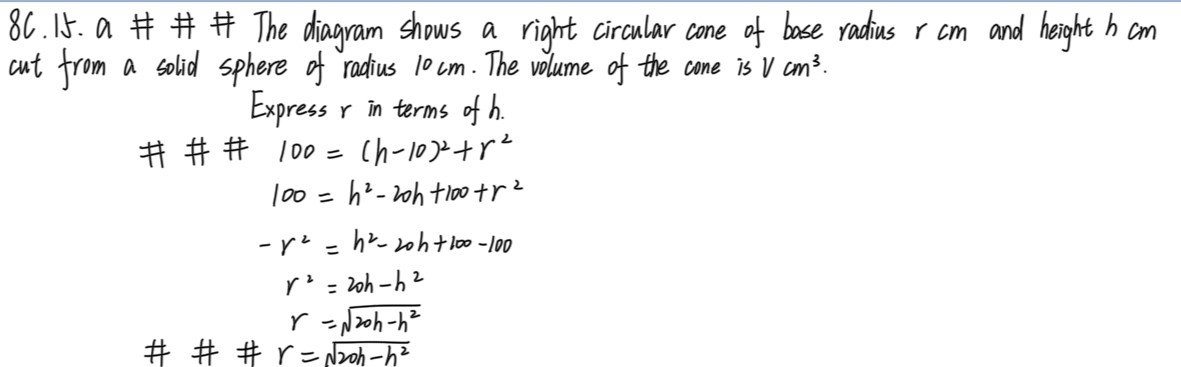 8C.15. a # # # The diagram shows a right circular cone of base radius r cm and height h cm
cut from a solid sphere of radius 10 cm. The volume of the cone is V cm³.
Express r in terms of h.
# # # 100 = (h-10)²+r²
100 = h²-20h+100+r²
-r² = h²-20h+100-100
r² = 20h-h²
r = √20h-h²
# # # r = √20h-h²